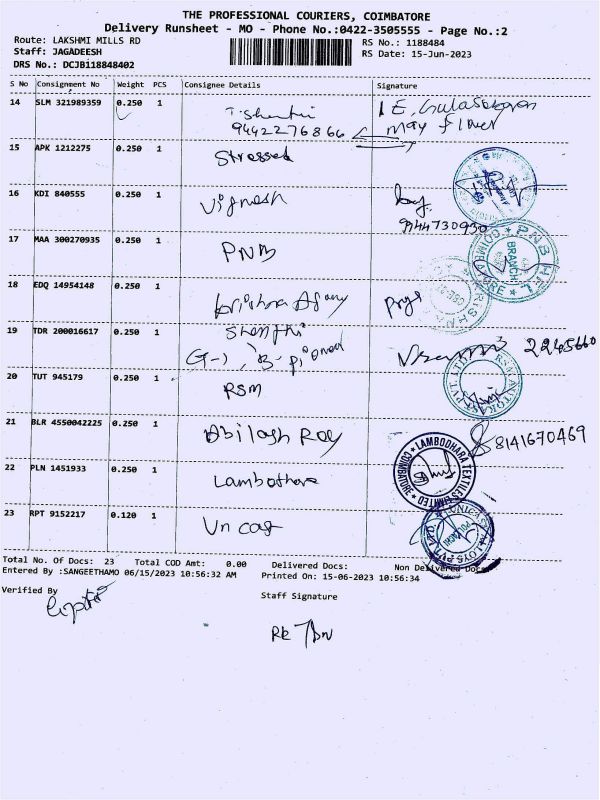 THE PROFESSIONAL COURIERS, COIMBATORE
Delivery Runsheet - MO - Phone No.:0422-3505555 - Page No.:2
Route: LAKSHMI MILLS RD
RS No.: 1188484
Staff: JAGADEESH
RS Date: 15-Jun-2023
DRS No.: DCJBi18848402
S No Consignment No Weight PCS Consignee Details Signature
14 SLM 321989359 0.250 1
9442276866 May flower
15 APK 1212275 0.250 1 Stressed
16 KDI 840555 0.250 1 Vignesh
9944730930
17 MAA 300270935 0.250 1 PNB
PNB HFL BRANCH COIMBATORE
18 EDQ 14954148 0.250 1 Krishna
19 TDR 200016617 0.250 1 Shanthi
2245660
20 TUT 945179 0.250 1 RSM
RSM AUTOKAST PVT. LTD
21 BLR 4550042225 0.250 1 Abilash Roy 8141670469
22 PLN 1451933 0.250 1 Lambothara
LAMBODHARA TEXTILES LIMITED COIMBATORE
23 RPT 9152217 0.120 1 Uni cast
Total No. Of Docs: 23 Total COD Amt: 0.00 Delivered Docs: Non Delivered Docs
Entered By :SANGEETHAMO 06/15/2023 10:56:32 AM Printed On: 15-06-2023 10:56:34
Verified By Staff Signature